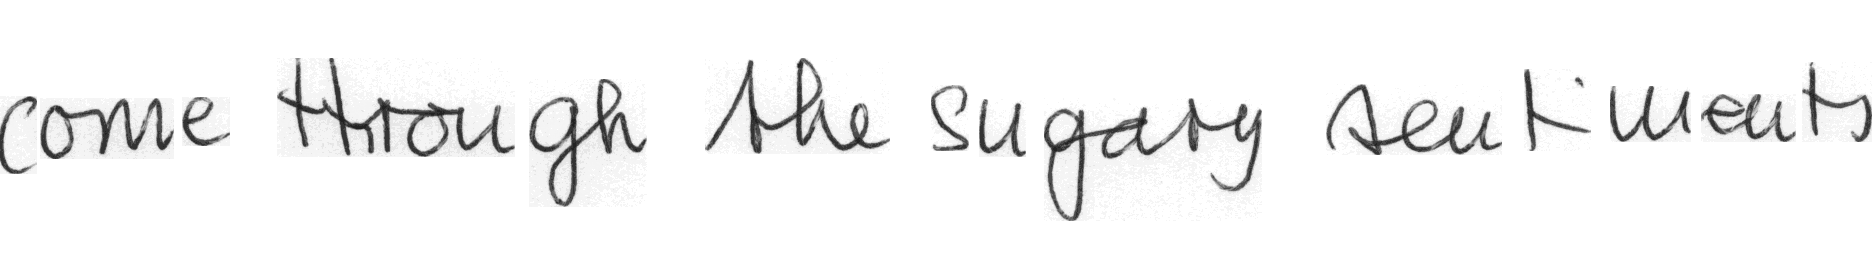 come through the sugary sentiments